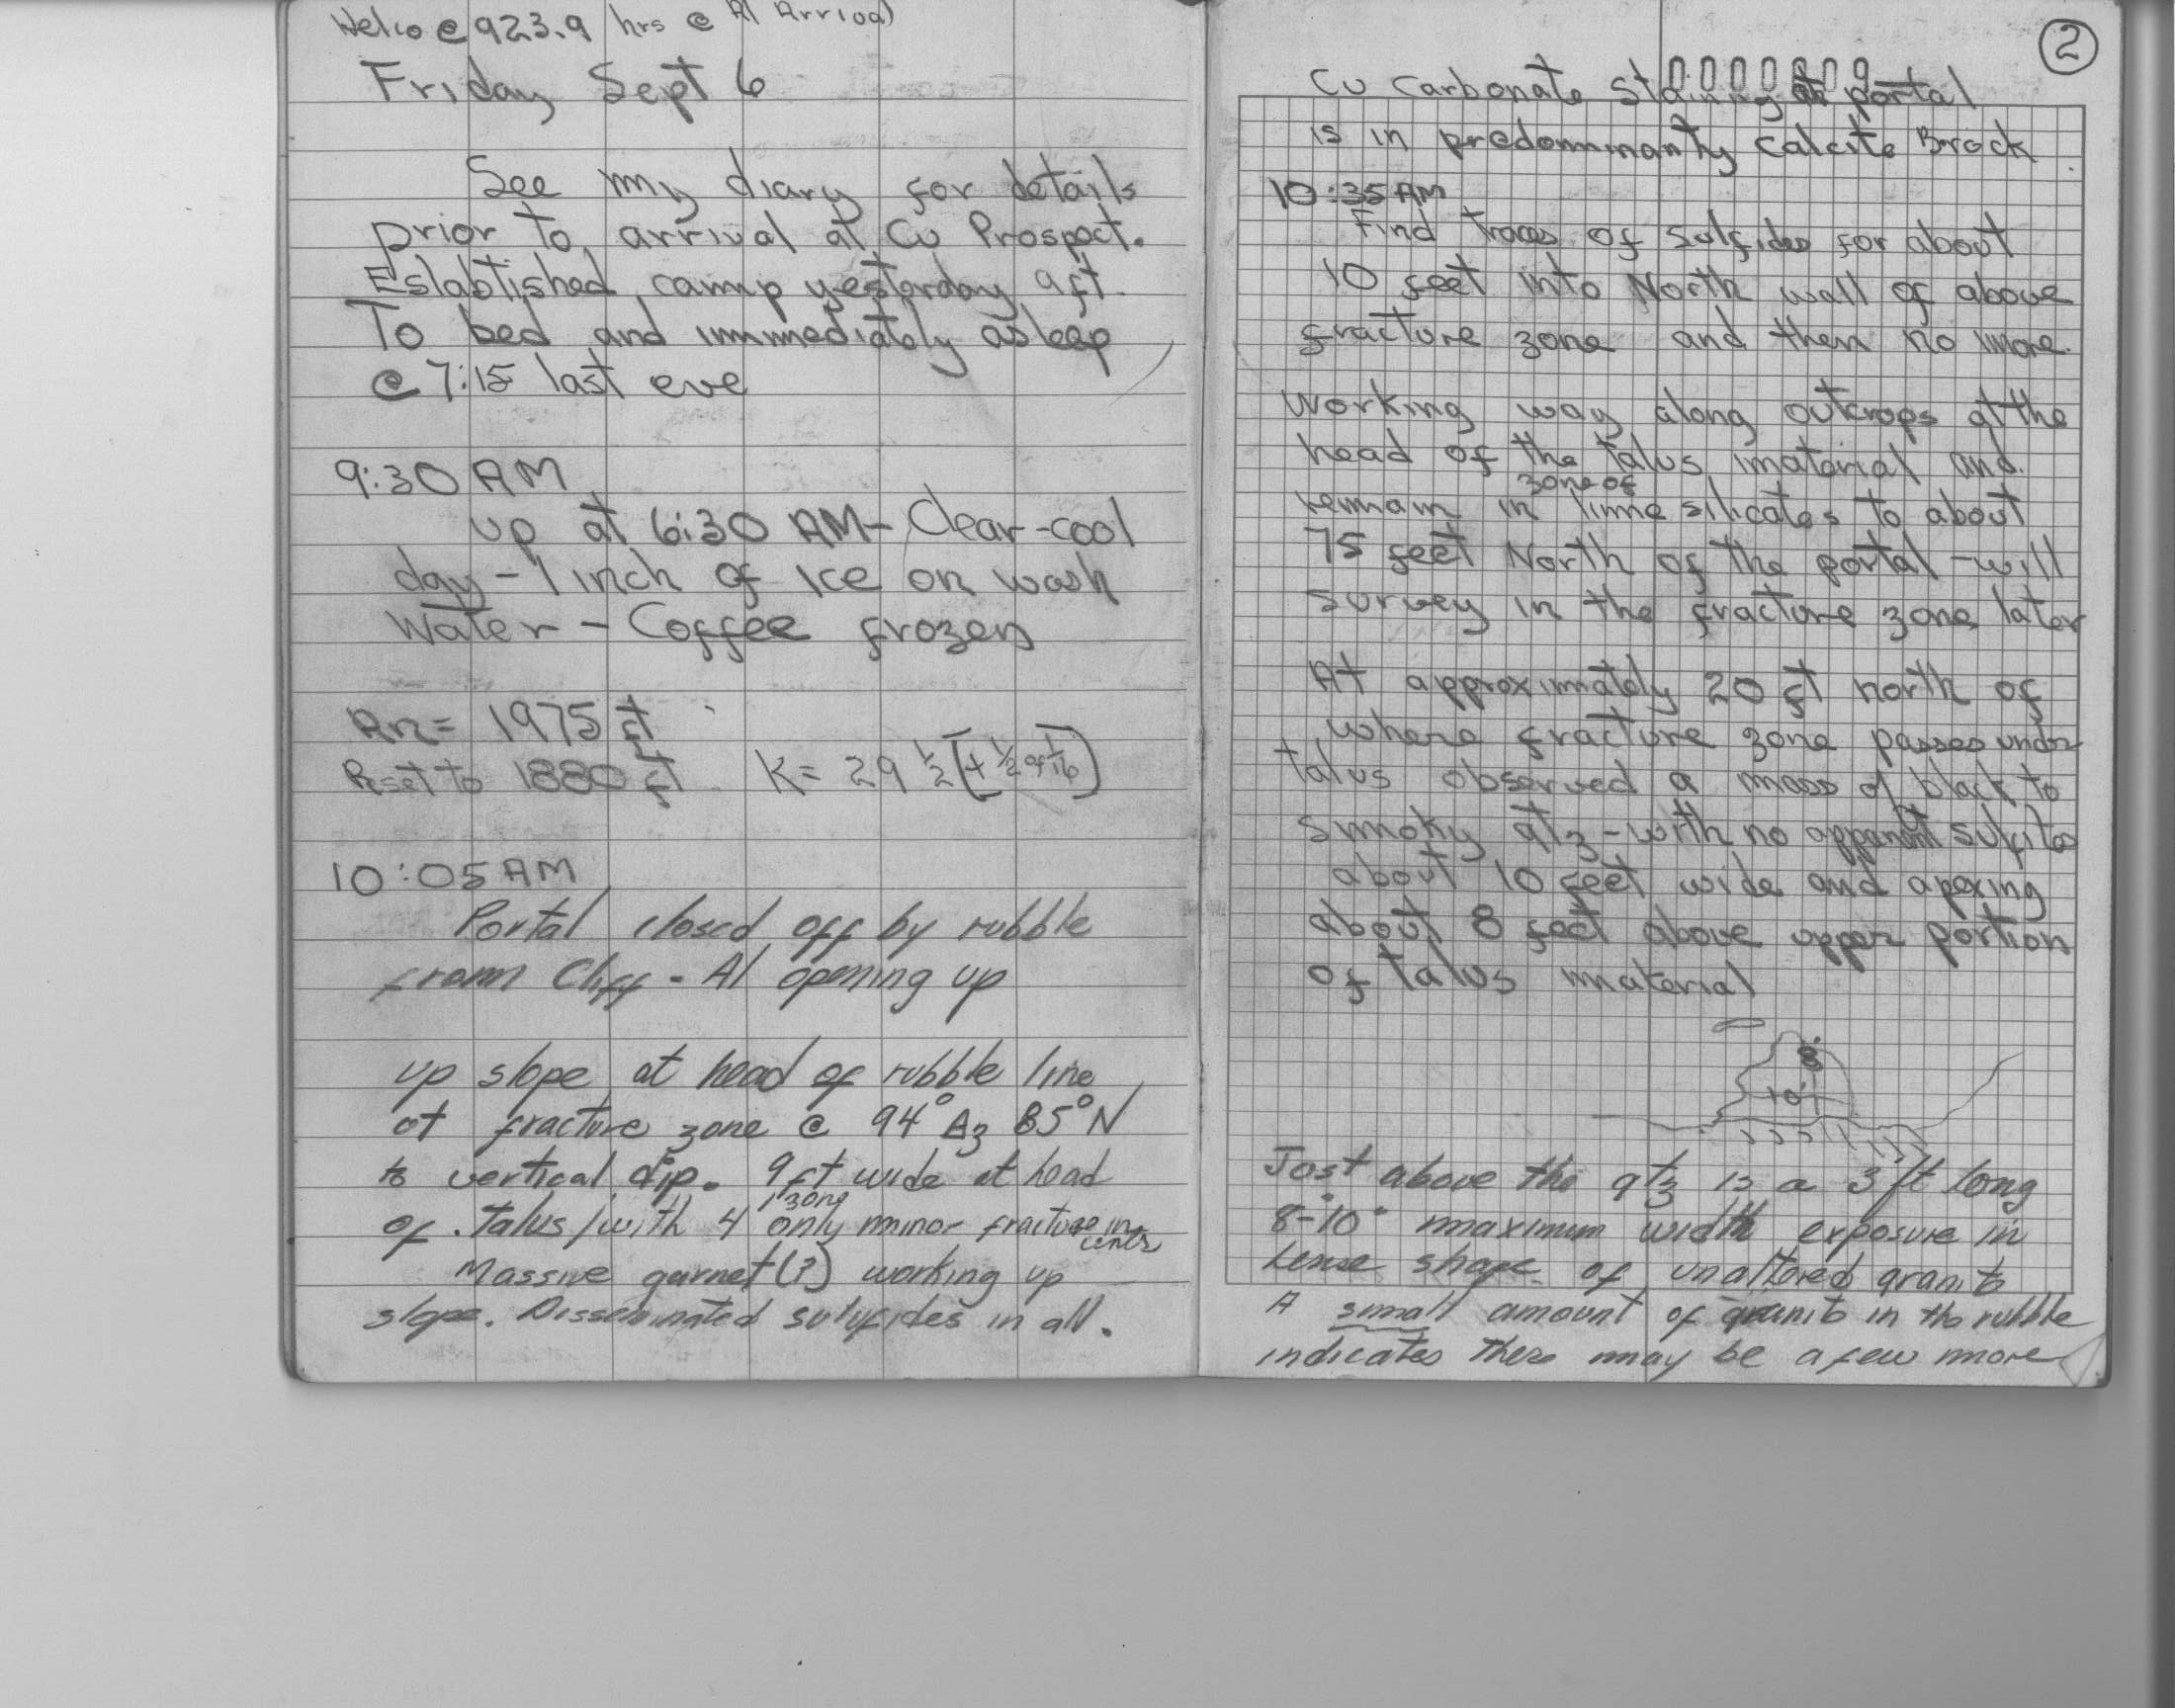 Helio @ 923.9 hrs @ Al Arrival
Friday Sept 6
See my diary for details
prior to arrival at Cu Prospect.
Established camp yesterday aft.
To bed and immediately asleep
@ 7:15 last eve
9:30 AM
up at 6:30 AM - Clear - cool
day - 1 inch of ice on wash
Water - Coffee frozen
An = 1975 ft
Reset to 1880 ft K = 29 1/2 [+ 1/2 of 1/16]
10:05 AM
Portal closed off by rubble
from Cliff - Al opening up
up slope at head of rubble line
at fracture zone @ 94° Az 85° N
to vertical dip. 9 ft wide at head
of talus / with 4 only minor fracture
zone
Massive garnet (?) working up
slope. Disseminated sulufides in all.
2
0000009
Cu Carbonate staining at portal
is in predominantly calcite Brock
10:35 AM
Find traces of sulfides for about
10 feet into North wall of above
fracture zone and then no more.
working way along outcrops at the
head of the talus material and
zone of
remain in lime silicates to about
75 feet North of the portal - will
survey in the fracture zone later
At approximately 20 ft north of
where fracture zone passes under
talus observed a mass of black to
smoky qtz - with no apparent sulfides
about 10 feet wide and apexing
about 8 feet above upper portion
of talus material
8'
10'
Just above the qtz is a 3 ft long
8-10" maximum width exposure in
lense shape of unaltered granite
A small amount of granite in the rubble
indicates there may be a few more